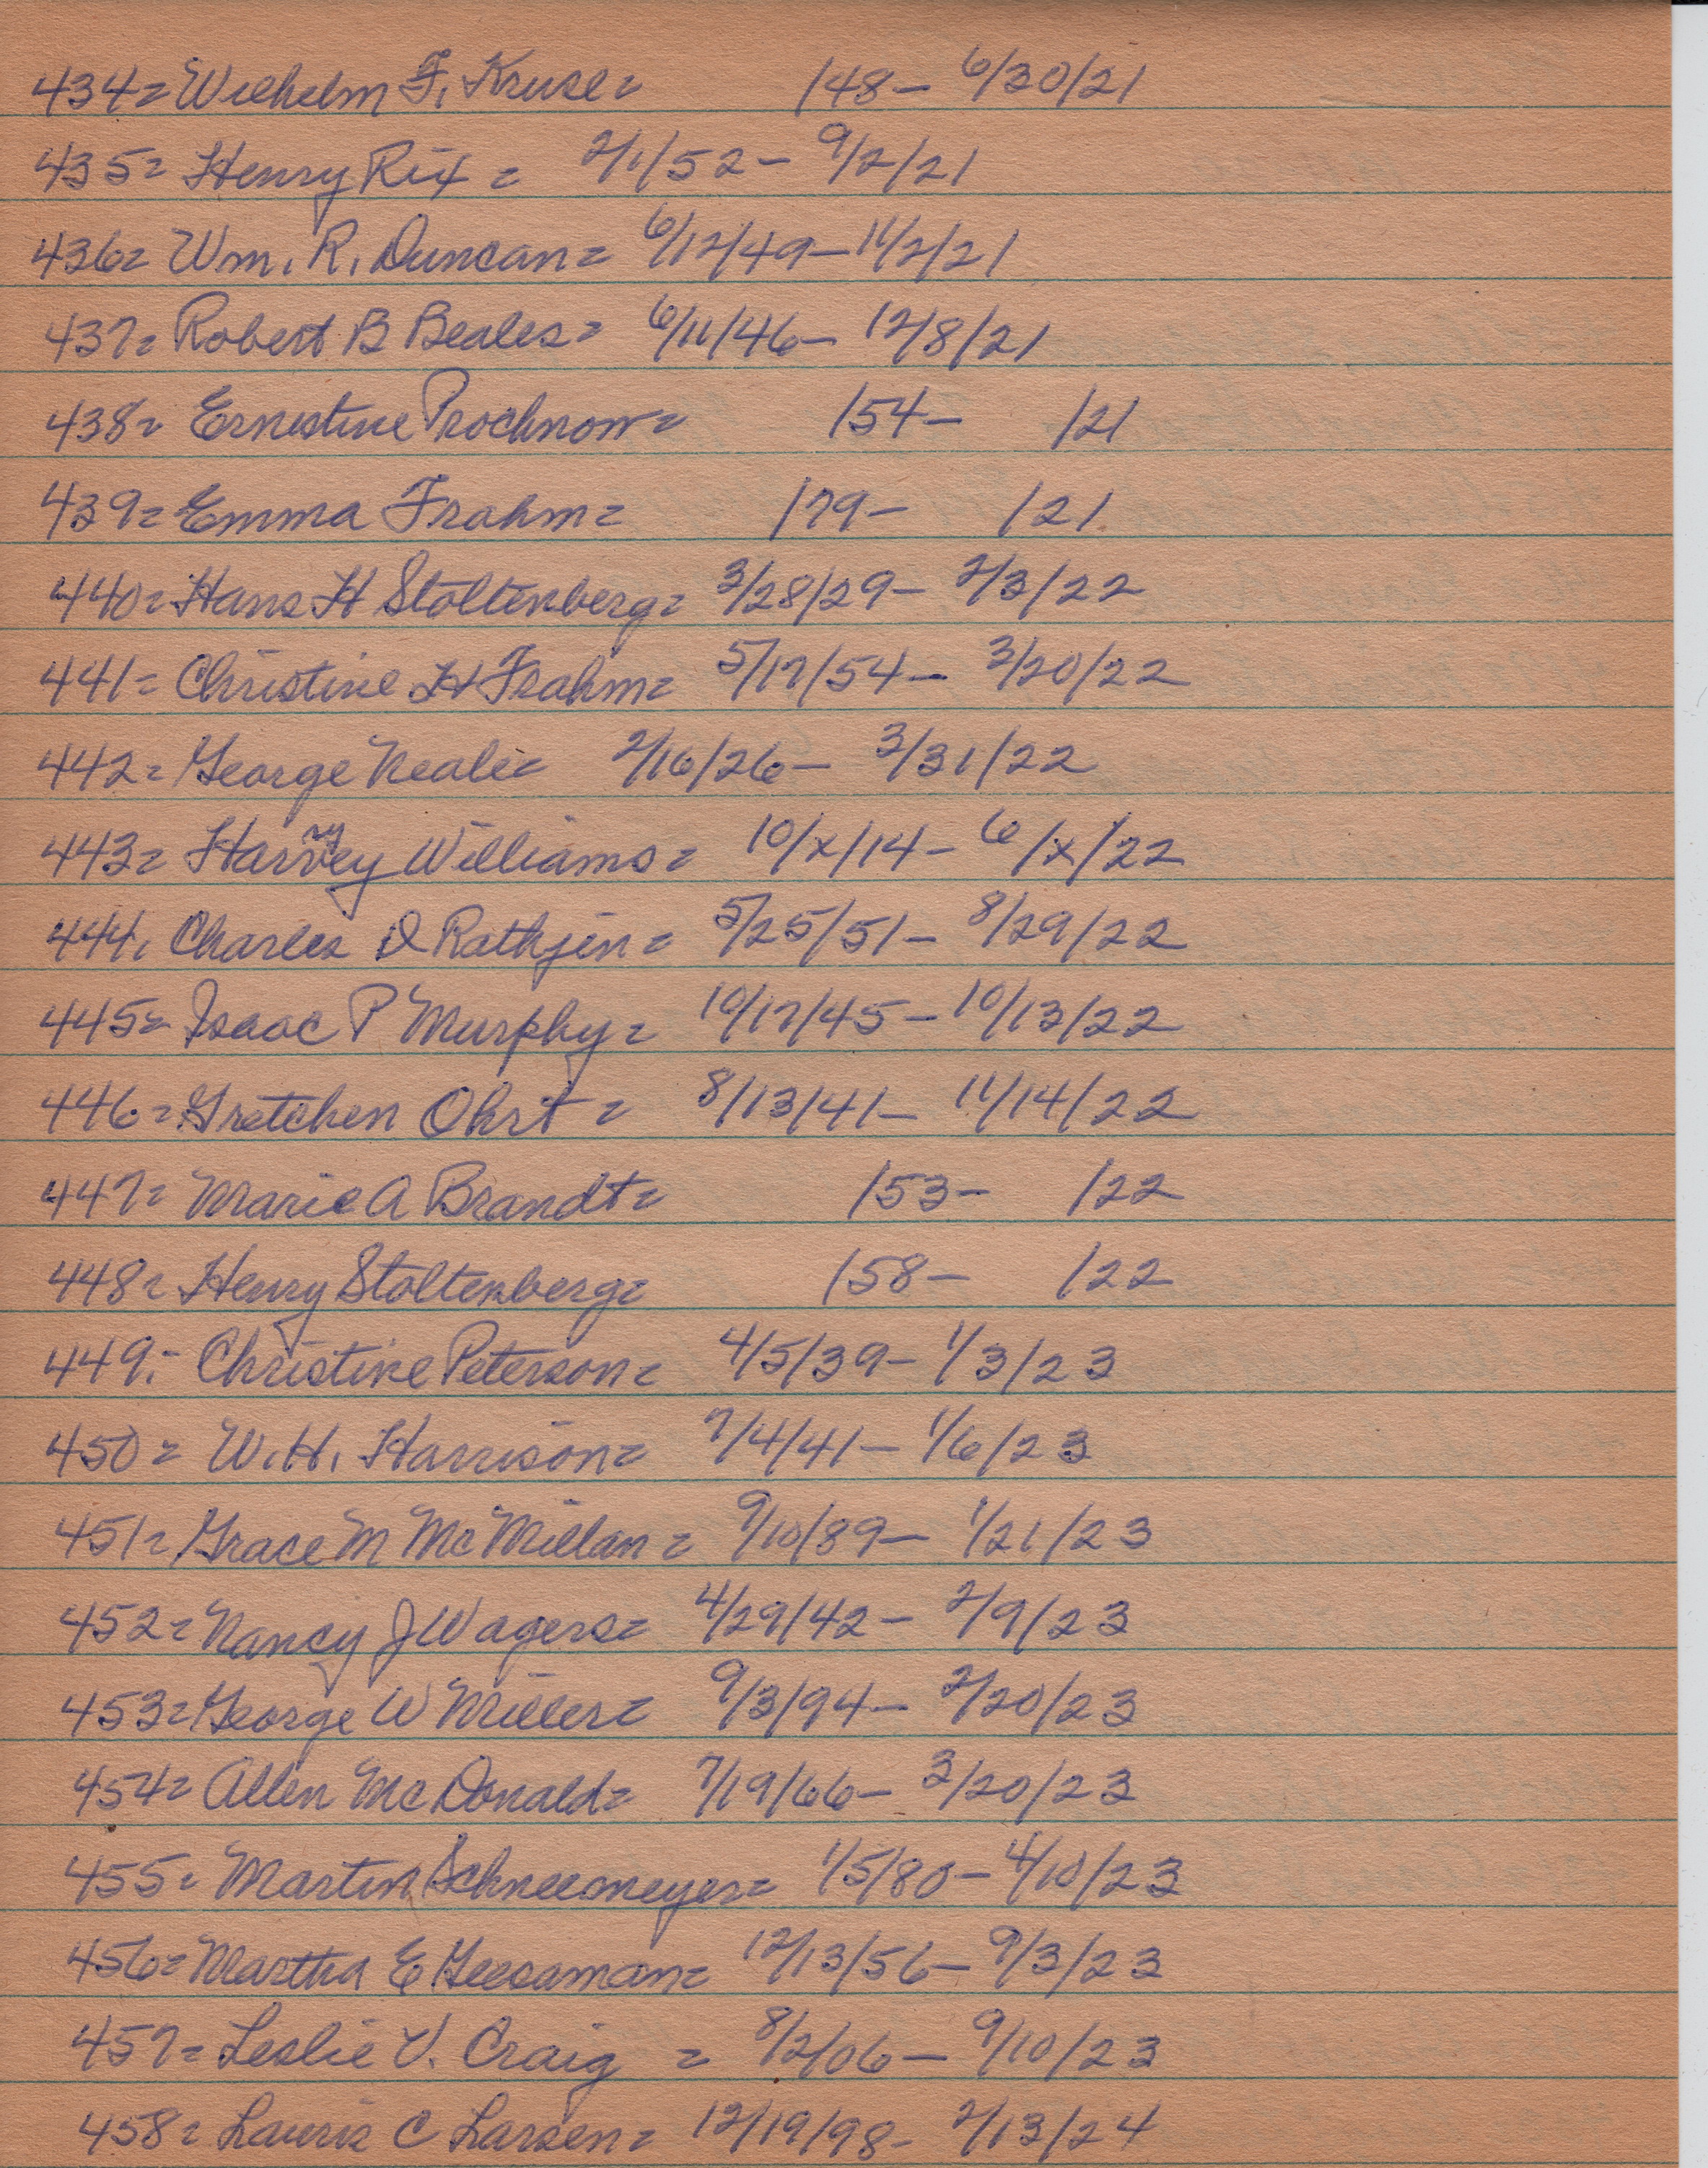 434= Wilhelm F. Kruse= /48- 6/30/21
435= Henry Rix = 2/1/52- 9/2/21
436= Wm. R. Duncan= 6/12/49-11/2/21
437= Robert B Beales= 6/11/46- 12/8/21
438= Ernestine Prochnow= /54- /21
439= Emma Frahm= /79- /21
440= Hans H Stoltenberg= 3/28/29- 2/3/22
441= Christine H Frahm= 5/17/54- 3/20/22
442= George Neale= 2/16/26- 3/31/22
443= Harvey ry Williams= 10/x/14- 6/x/22
444. Charles D Rathjen= 5/25/51- 8/29/22
445= Isaac P Murphy= 10/17/45-10/13/22
446= Gretchen Ohrt= 8/13/41- 11/14/22
447= Marie A Brandt= /53- /22
448= Henry Stoltenberg= /58- /22
449.- Christine Peterson= 4/5/39- 1/3/23
450= W.H. Harrison= 7/4/41- 1/6/23
451= Grace M McMillan= 9/10/89- 1/21/23
452= Nancy J Wagers= 4/29/42- 2/9/23
453= George W Miller= 9/3/94- 2/20/23
454= Allen McDonald= 7/19/66- 3/20/23
455= Martin Schneemeyer= 1/5/80- 4/10/23
456= Martha E Geesaman= 12/13/56- 9/3/23
457= Leslie V. Craig = 8/2/06- 9/10/23
458= Lauris C Larsen= 12/19/98- 2/13/24